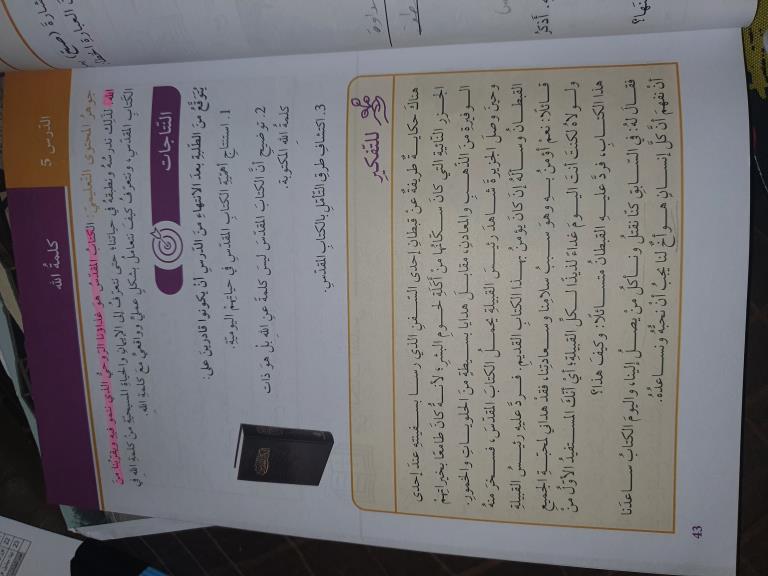 الدرس 5
كلمة الله
جوهرُ المحتوى التعليمي: الكتابُ المقدّس هو غذاؤنا الرّوحيُّ الذي ننمو فيهِ ويقرّبنا منَ
الله، لذلِك ندرسُهُ ونطبقهُ في حياتنا؛ حتى نتعرّفَ إلى الإيمانِ والحياةِ المسيحيّةِ منْ كلمةِ اللهِ في
الكتابِ المقدّس، ونتعرّفُ كيفَ نتعامل بشكلٍ عمليٍّ وواقعيٍّ معَ كلمةِ الله.
النّتاجات
يُتوقّعُ منَ الطّلبةِ بعدَ الانتهاءِ منَ الدّرسِ أنْ يكونوا قادرينَ على:
1. استنتاجِ أهميّةِ الكتابِ المقدّسِ في حياتهمُ اليوميّةِ.
2. توضيحِ أنَّ الكتابَ المقدّسَ ليسَ كلمةً عنِ اللهِ بلْ هوَ ذات
كلمةُ اللهِ المكتوبة.
3. اكتشافِ طرقِ التّأملِ بالكتابِ المقدّس.
للتفكير
هناكَ حكايةٌ طريفةٌ عنْ قبطانِ إحدى السّفنِ الذي رسا بسفينتِهِ عندَ إحدى
الجزرِ النّائيةِ التي كانَ سكّانُها منْ أكلَةِ لحومِ البشرِ؛ لأنّهُ كانَ طامعًا بخيراتِهمُ
الوفيرةِ منَ الذّهبِ والمعادنِ، مقابلَ هدايا بسيطةٍ منَ الحلوياتِ والخمورِ.
وحينَ وصلَ الجزيرةَ شاهدَ رئيسَ القبيلةِ يحملُ الكتابَ المقدّسَ، فسخرَ منهُ
القبطانُ وسألَهُ إنْ كانَ يؤمنُ بهذا الكتابِ القديمِ، فردَّ عليهِ رئيسُ القبيلةِ
قائلًا: نعمْ أؤمنُ بهِ وهوَ سببُ سلامِنا وسعادتِنا، فقدْ هدانا لمحبةِ الجميعِ
ولولاهُ لكنتَ أنتَ اليومَ غداءً لذيذًا لكلِّ القبيلةِ؛ أيْ أنّكَ المستفيدُ الأوّلُ منْ
هذا الكتابِ، فردَّ عليهِ القبطانُ متسائلًا: وكيفَ هذا؟
فقالَ لهُ: في السّابقِ كنّا نقتلُ ونأكلُ منْ يصلُ إلينا، واليومَ الكتابُ ساعدَنا
أنْ نفهمَ أنَّ كلَّ إنسانٍ هوَ أخٌ لنا يجبُ أنْ نحبَّهُ ونساعدَهُ.
43